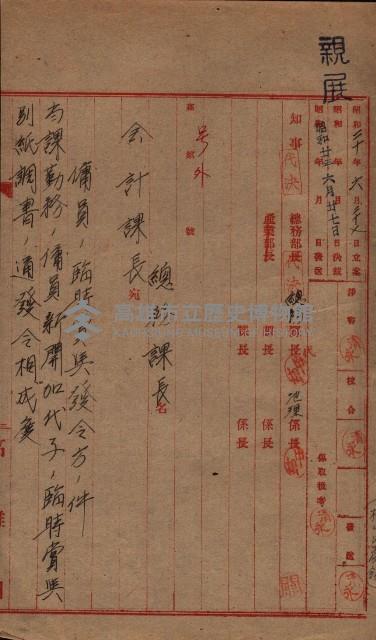 親展
昭和二十年六月二十七日立案
昭和 年 月 日決裁
昭和廿年六月廿七日發送
淨書
校合
發送
係取扱者
知事代決
總務部長代決
產業部長
總務課長
課長
課長
地理係長
係長
係長
高雄 號
号外
總務課長名
会計課長宛
高雄市立歷史博物館
KAOHSIUNG MUSEUM OF HISTORY
傭員臨時賞与發令方ノ件
當課勤務傭員新開加代子ノ臨時賞與
別紙調書ノ通發令相成度
高雄州